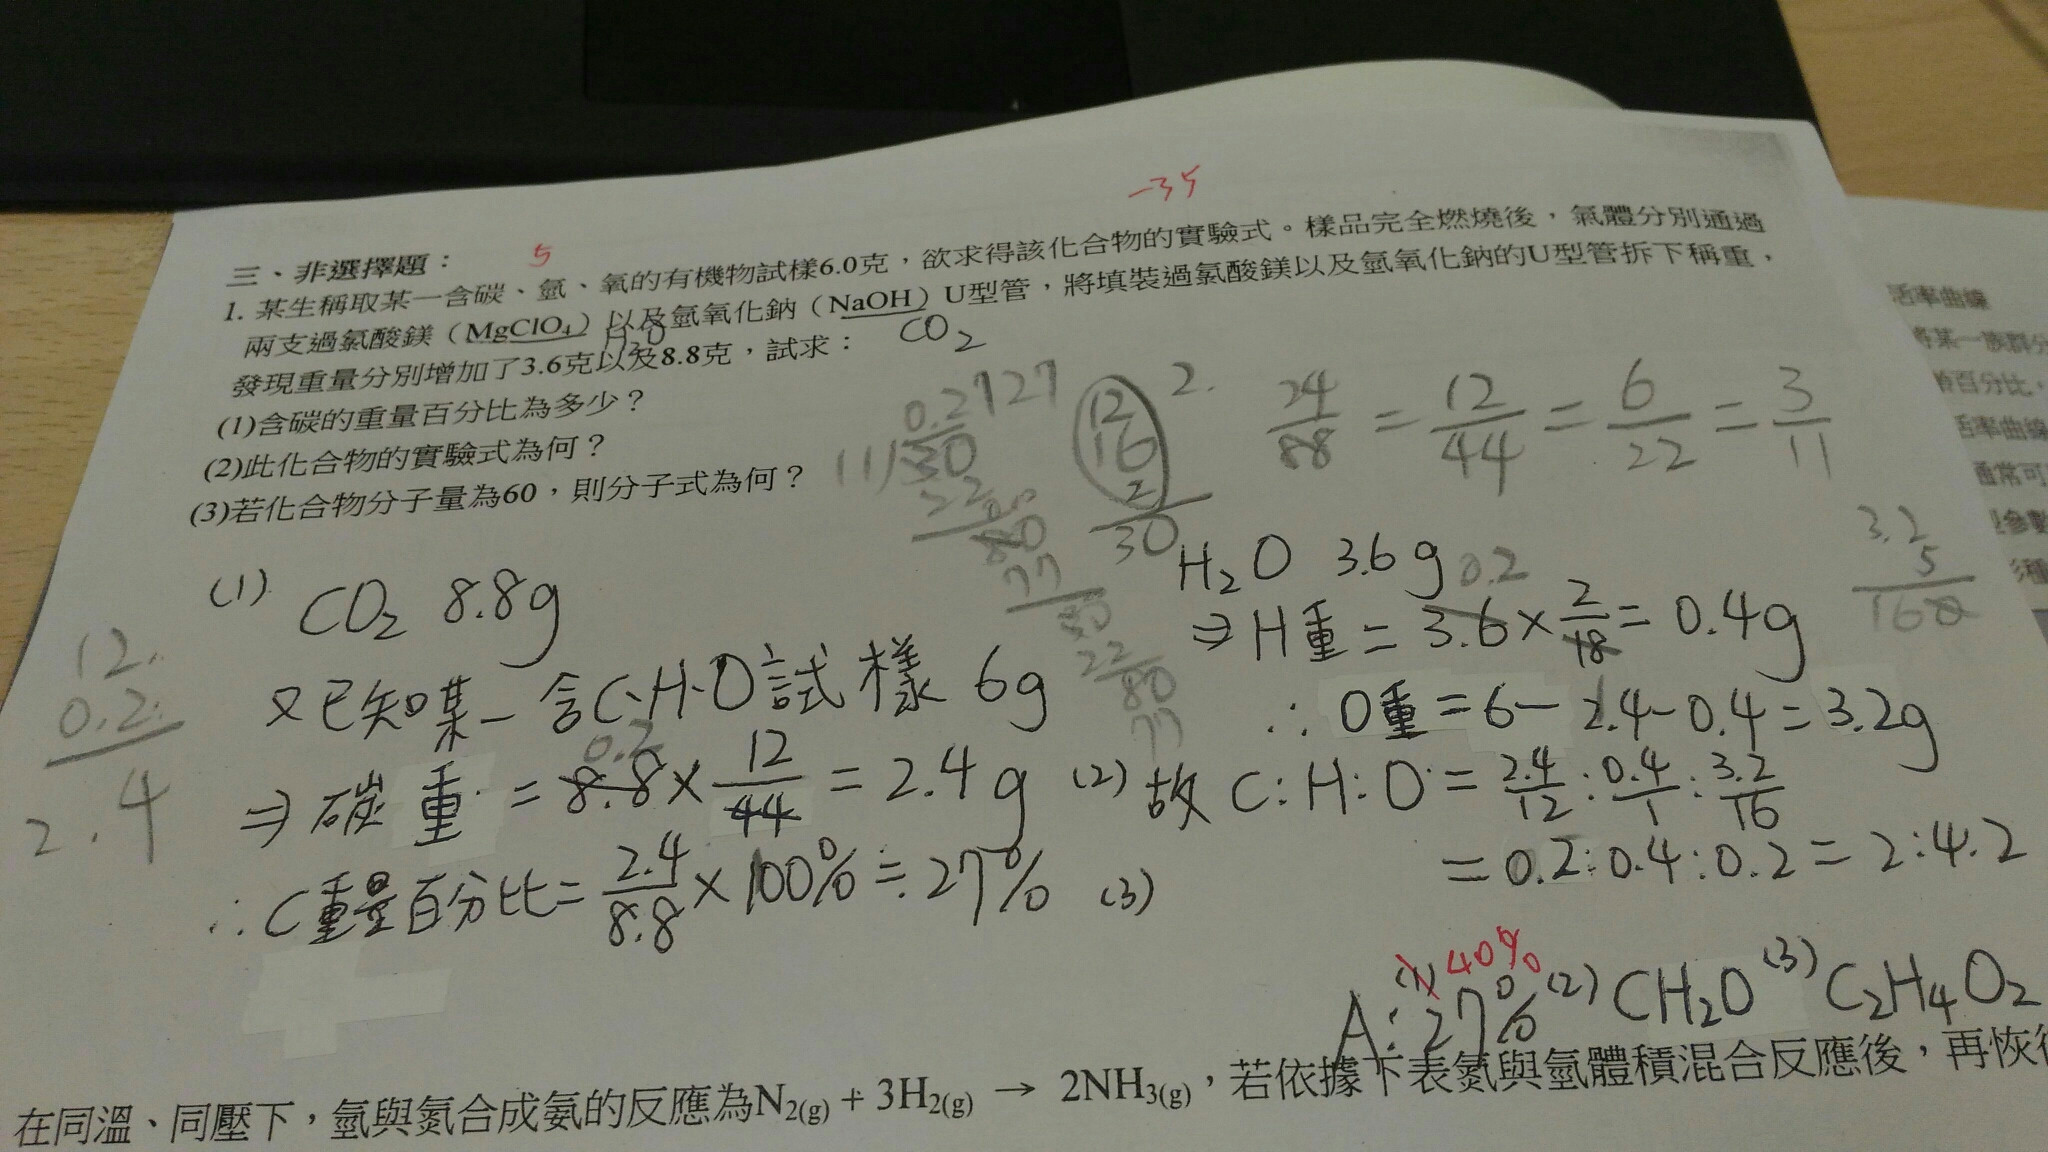 -35
三、非選擇題：
5
1. 某生稱取某一含碳、氫、氧的有機物試樣6.0克，欲求得該化合物的實驗式。樣品完全燃燒後，氣體分別通過
兩支過氯酸鎂（MgClO4）以及氫氧化鈉（NaOH）U型管，將填裝過氯酸鎂以及氫氧化鈉的U型管拆下稱重，
H2O
CO2
發現重量分別增加了3.6克以及8.8克，試求：
(1)含碳的重量百分比為多少？
(2)此化合物的實驗式為何？
(3)若化合物分子量為60，則分子式為何？
0.2727
11)30
22
80
77
30
22
80
77
12
16
2
30
2.
24/88 = 12/44 = 6/22 = 3/11
3.2
5
160
12.
0.2.
2.4
(1) CO2 8.8g
又已知某一含C.H.O試樣 6g
0.2
⇒ 碳重 = 8.8 × 12/44 = 2.4g
∴ C重量百分比 = 2.4/8.8 × 100% ≒ 27%
H2O 3.6g
0.2
⇒ H重 = 3.6 × 2/18 = 0.4g
∴ O重 = 6 - 2.4 - 0.4 = 3.2g
(2) 故 C:H:O = 2.4/12 : 0.4/1 : 3.2/16
= 0.2:0.4:0.2 = 2:4:2
(3)
40%
A: (1) 27% (2) CH2O (3) C2H4O2
在同溫、同壓下，氫與氮合成氨的反應為N2(g) + 3H2(g) → 2NH3(g)，若依據下表氮與氫體積混合反應後，再恢復
活率曲線
將某一族群分
百分比，
活率曲線
通常可